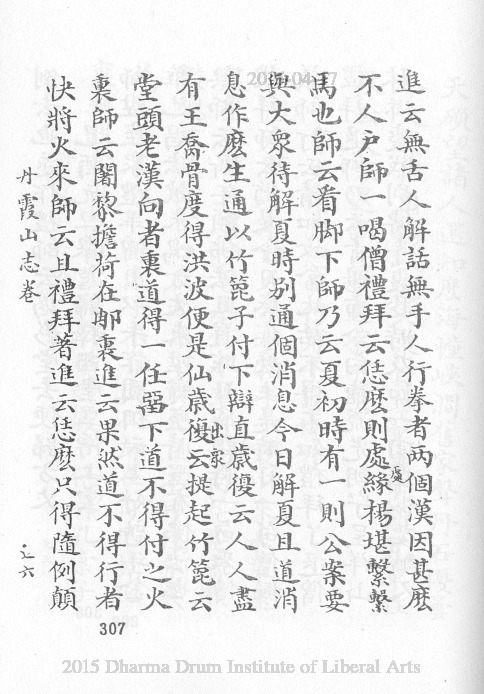 進云無舌人解話無手人行拳者兩個漢因甚麽
不入戶師一喝僧禮拜云恁麽則處處綠楊堪繫
馬也師云看脚下師乃云夏初時有一則公案要
與大眾待解夏時別通個消息今日解夏且道消
息作麽生通以竹篦子付下辯直歲復云人人盡
有王喬骨度得洪波便是仙歲復出眾云提起竹篦云
堂頭老漢向者裏道得一任留下道不得付之火
裏師云闍黎擔荷在那裏進云果然道不得行者
快將火來師云且禮拜著進云恁麽只得隨例顛
丹霞山志卷
七六
307
2015 Dharma Drum Institute of Liberal Arts